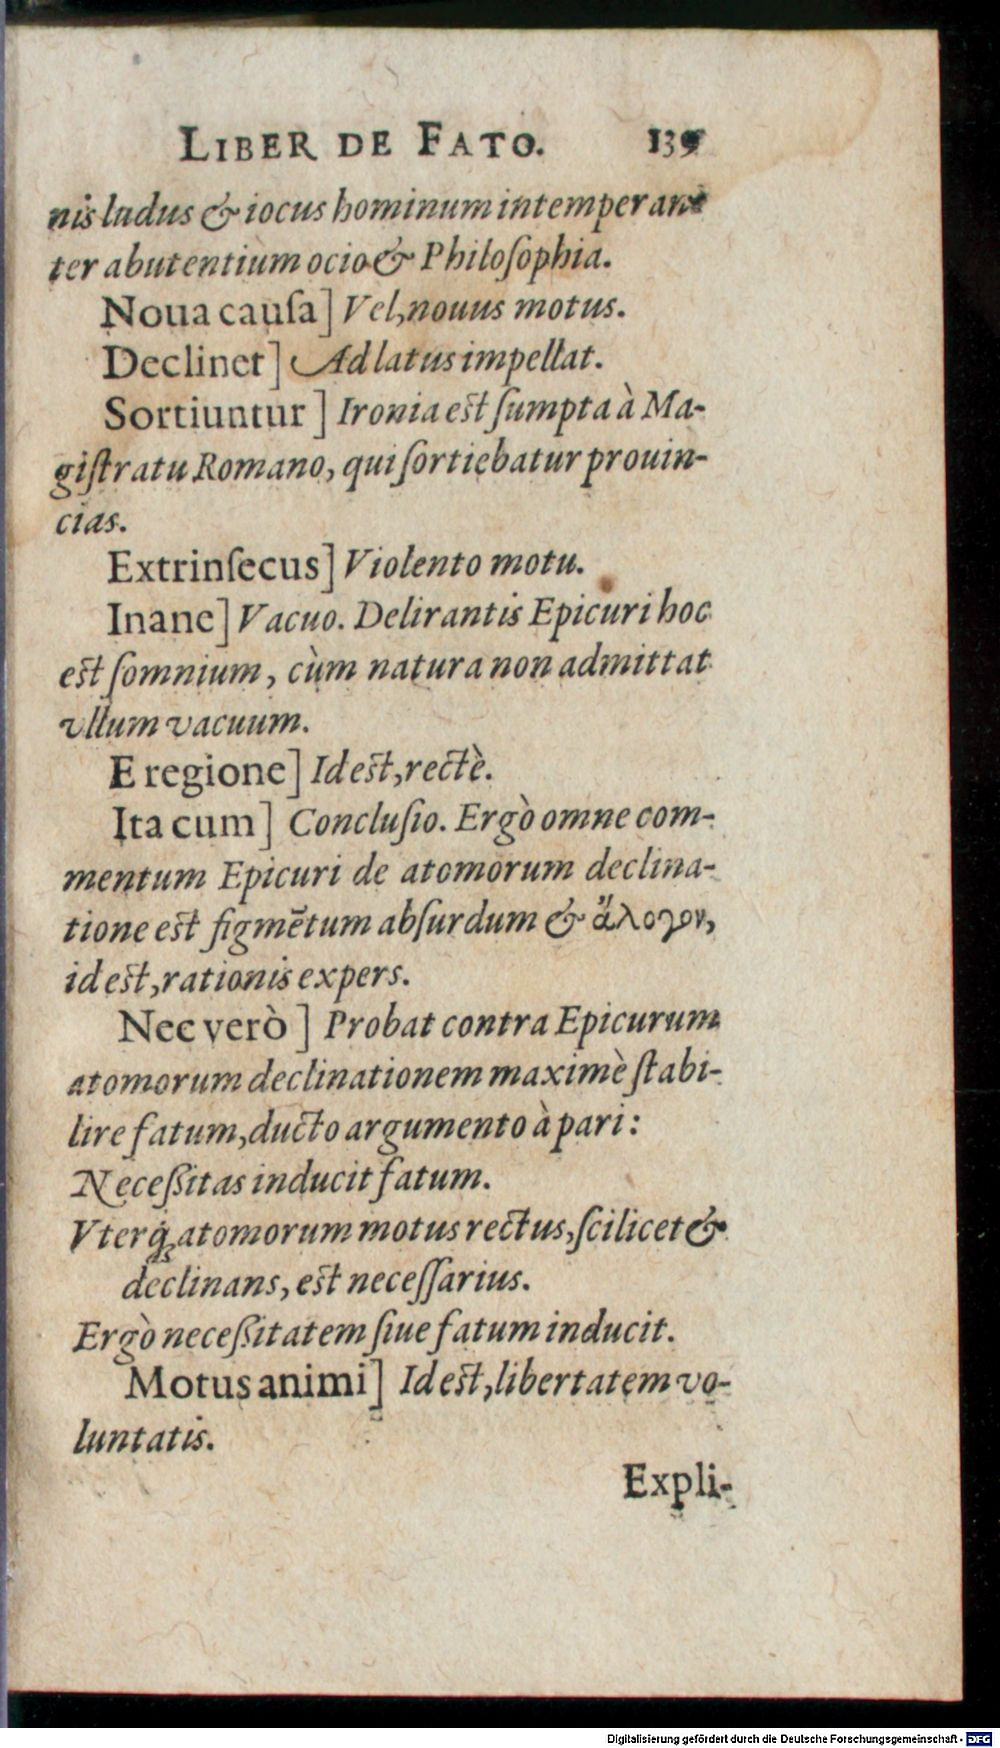 LIBER DE FATO. 139
nis ludus & iocus hominum intemperan-
ter abutentium ocio & Philoſophia.
Noua cauſa] Vel, nouus motus.
Declinet] Ad latus impellat.
Sortiuntur] Ironia est ſumpta à Ma-
giſtratu Romano, qui ſortiebatur prouin-
cias.
Extrinſecus] Violento motu.
Inane] Vacuo. Delirantis Epicuri hoc
est ſomnium, cùm natura non admittat
vllum vacuum.
E regione] Id est, rectè.
Ita cum] Concluſio. Ergò omne com-
mentum Epicuri de atomorum declina-
tione est figmētum abſurdum & ἄλογον,
id est, rationis expers.
Nec verò] Probat contra Epicurum
atomorum declinationem maximè ſtabi-
lire fatum, ducto argumento à pari:
Neceßitas inducit fatum.
Vterq; atomorum motus rectus, ſcilicet &
declinans, est neceſſarius.
Ergò neceßitatem ſiue fatum inducit.
Motus animi] Id est, libertatem vo-
luntatis.
Expli-
Digitalisierung gefördert durch die Deutsche Forschungsgemeinschaft - DFG